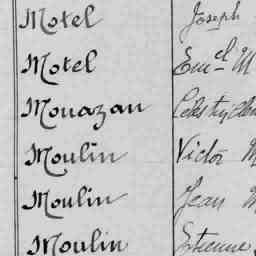 Motel Joseph
Motel Em.el M
Mouazan
Moulin Victor M
Moulin Jean M
Moulin Etienne